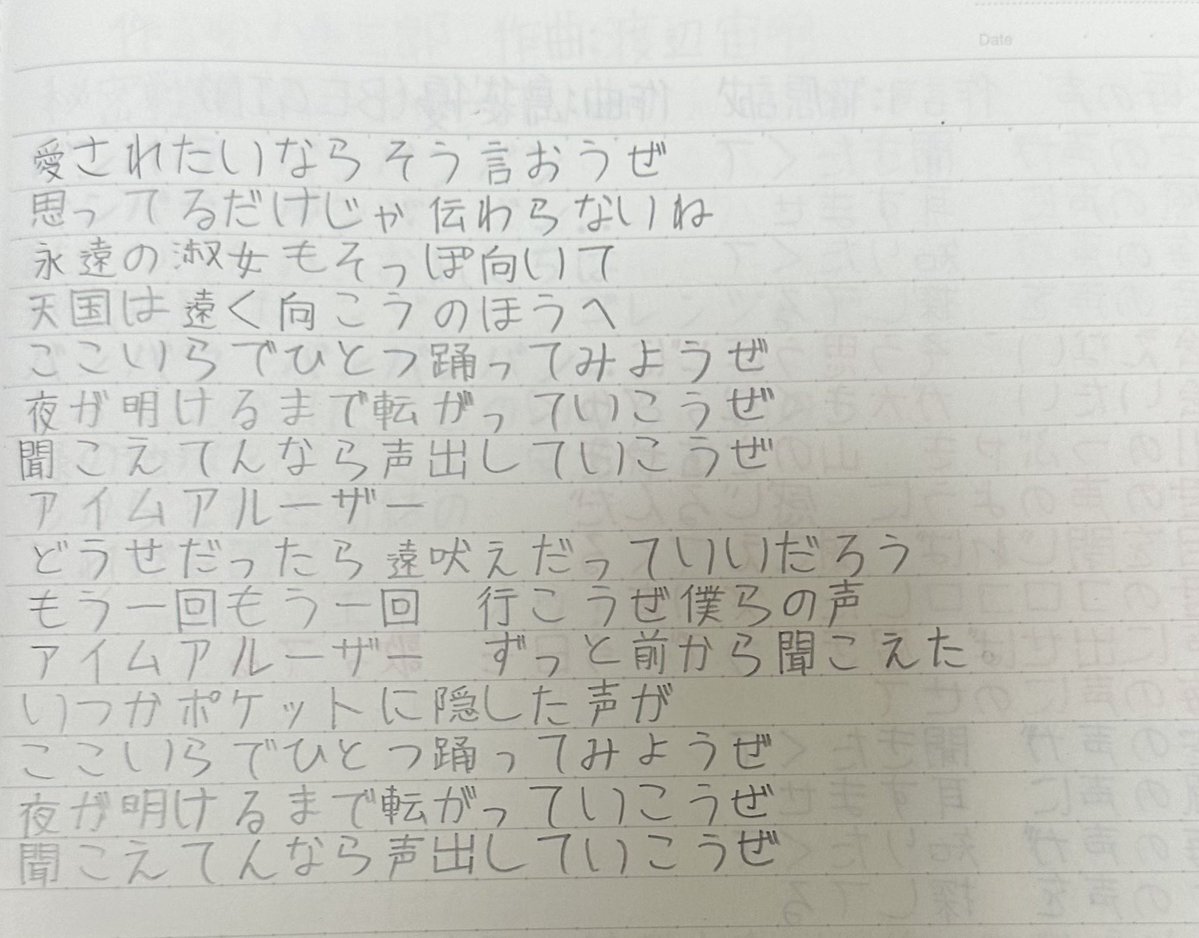 Date
愛されたいならそう言おうぜ
思ってるだけじゃ伝わらないね
永遠の淑女もそっぽ向いて
天国は遠く向こうのほうへ
ここいらでひとつ踊ってみようぜ
夜が明けるまで転がっていこうぜ
聞こえてんなら声出していこうぜ
アイムアルーザー
どうせだったら遠吠えだっていいだろう
もう一回もう一回　行こうぜ僕らの声
アイムアルーザー　ずっと前から聞こえた
いつかポケットに隠した声が
ここいらでひとつ踊ってみようぜ
夜が明けるまで転がっていこうぜ
聞こえてんなら声出していこうぜ